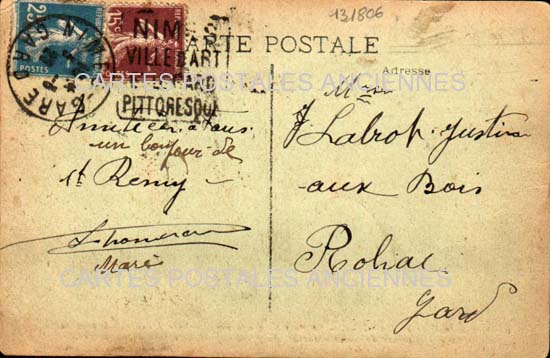 131806
CARTE POSTALE
Adresse
25
15c
POSTES
NIMES GARE
GARD
NIMES
VILLE D'ART
GARD
PITTORESQUE
CARTES POSTALES ANCIENNES
Amitiés à tous
un bonjour de
St Remy
Marc
Mme
Labrot Justin
aux Bois
Rohac
Gard
CARTES POSTALES ANCIENNES